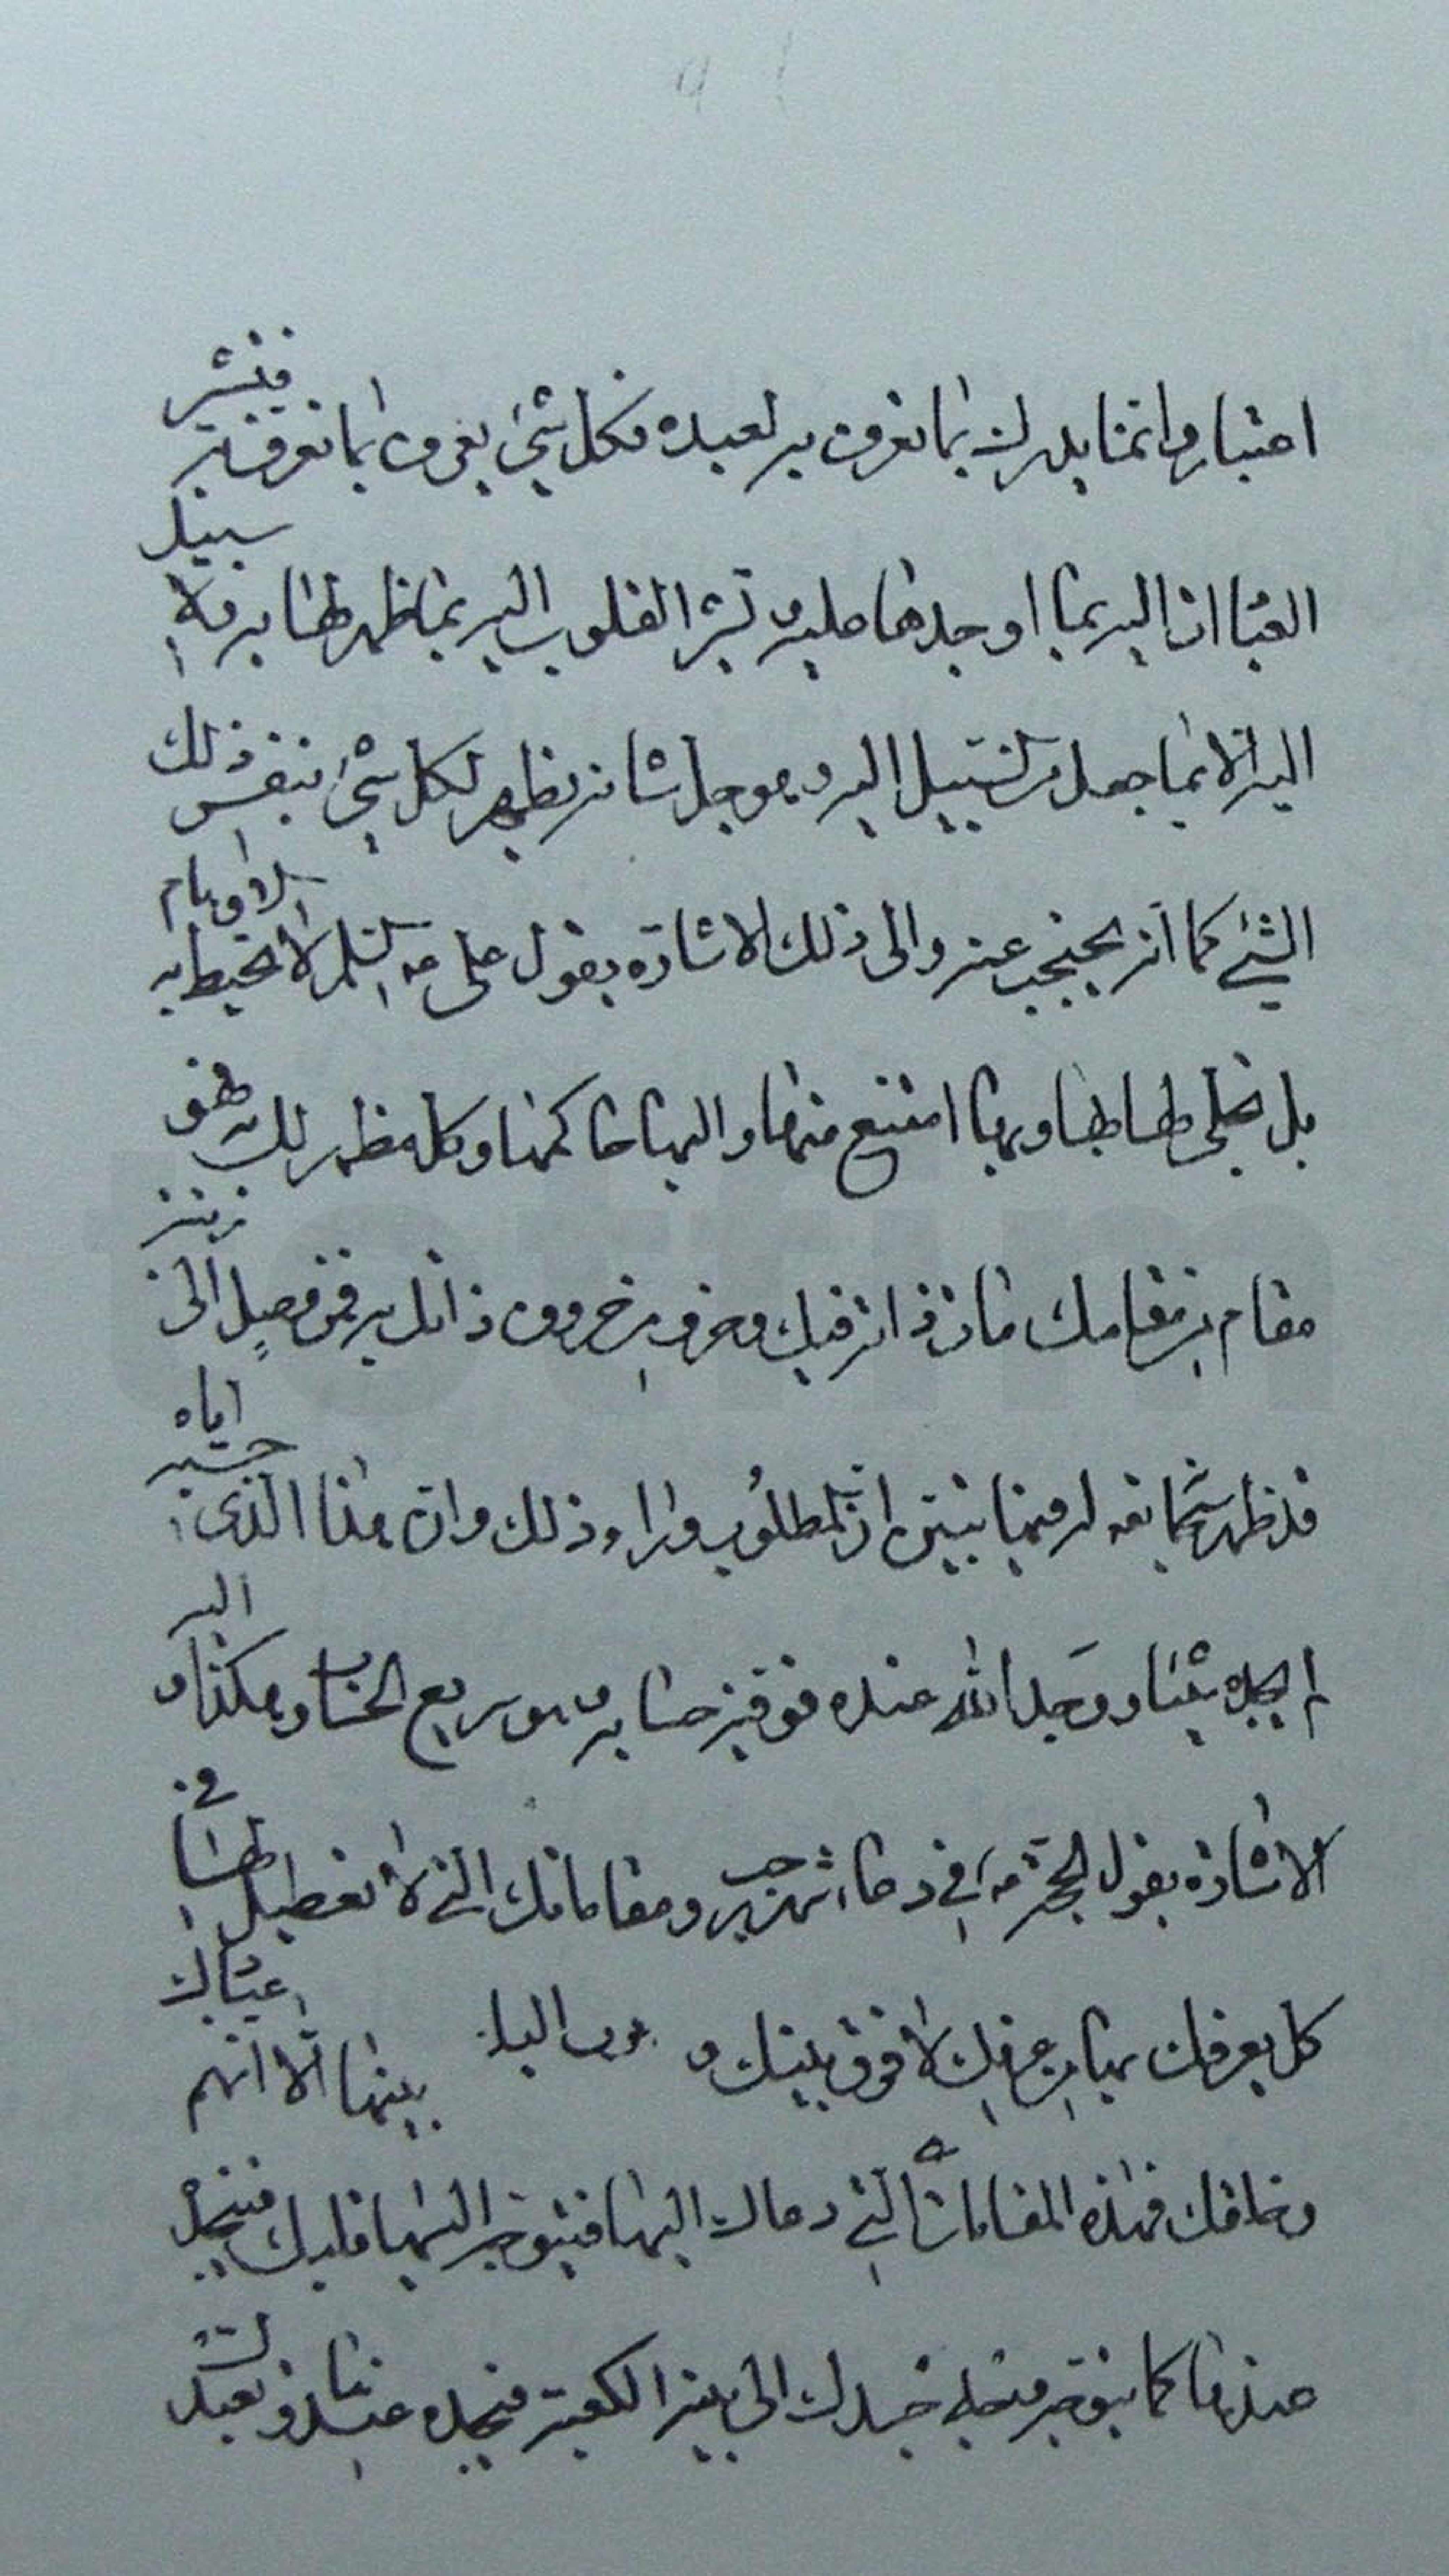 اعتبار وانما يدرك بما تعرف به لعبده فكل شئ يعرفه بما تعرف به فتشير
العبارات اليه بما اوجدها عليه وتشير القلوب اليه بما ظهر لها به فلا سبيل
اليه الا بما جعل من السبيل اليه وهو جل شانه يظهر لكل شئ بنفس ذلك
الشئ كما انه يحتجب عنه والى ذلك الاشارة بقول على ع لا تحيط به الاوهام
بل تجلى لها بها وبها امتنع منها واليها حاكمها وكلما ظهر لك به فهو
مقام من مقامك فان ذاته فيك وحرف من حروف ذاتك به فمن وصل الى رتبة
قد ظهر سبحانه له فيها تبين ان المطلوب وراء ذلك وان هذا الذى حسبه اياه
لم يجده شيئا ووجد الله عنده فوفيه حسابه وهو سريع الحساب وهكذا واليه
الاشارة بقول الحجة ع فى دعاء شهر رجب ومقاماتك التى لا تعطيل لها فى
كل يعرفك بها من عرفك لا فرق بينك و بينها الا انهم عبادك
وخلقك فهذه المقامات التى دعاك اليها فيتوجه اليها قلبك فتجده
عندها كما يتوجه جسدك الى بيته الكعبة فتجده عندها وتعبد